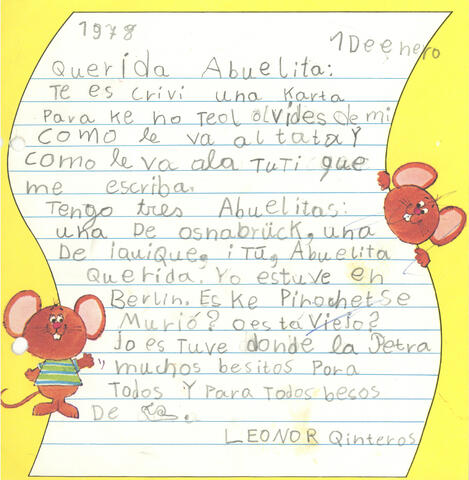 1978 1 De enero
Querida Abuelita:
Te es crivi una Karta
Para Ke no Teol olvides de mi
Como le va al tata Y
Como le va ala TuTi que
me escriba.
Tengo tres Abuelitas:
una De osnabrück, una
De iquique, i Tú, Abuelita
Querida. Yo estuve en
Berlin. Es Ke Pinochet se
Murió? o esta Viejo?
Jo es Tuve donde la Petra
muchos besitos Para
Todos Y Para Todos besos
De
LEONOR Qinteros